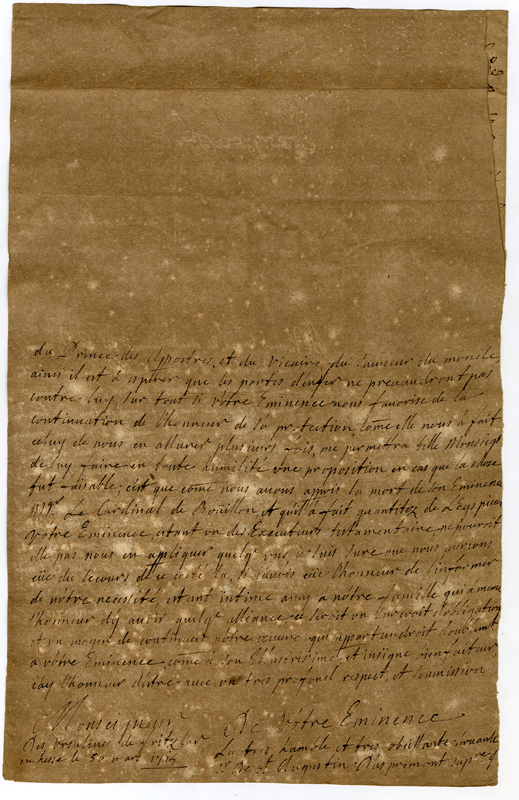 du Prince des Apostres, et du Vicaire du Sauveur du monde
ainsi il est à esperer que les portes d'enfer ne prevaudront pas
contre luy, sur tout si vôtre Eminence nous favorise de la
continuation de l'honneur de sa protection come elle nous à fait
celuy de nous en assurer plusieurs fois, me permettra t'elle Monseigr
de luy faire en toute humilité une proposition en cas que la chose
fut faisable; c'est que come nous avons apris la mort de son Eminence
Mgr Le Cardinal de Boüillon et qu'il a fait quantitez de Legs pieux
Vôtre Eminence estant un des Executeurs testamentaire ne pouroit
elle pas nous en appliquer quelqe uns, je suis sure que nous aurions
eüe du secours de ce costé la, si j'avois eüe l'honneur de l'informer
de nôtre necessité, estant intime amy a notre famille qui a meme
l'honneur d'y avoir quelqe alliance ce seroit un surcroit d'obligation
et un moyen de continuer nôtre œuvre qui apartiendroit doublemt
a vôtre Eminence come à son Illustrissime et insigne bienfaiteur
j'ay l'honneur d'être avec un tres profond respect, et soumission
Monseigneur
De Vôtre Eminence
Des Ursulines de fritzlar
en hesse le 30 mart 1715
La tres humble et tres obeissante servante
Sr. De St. Augustin Daspremont supre